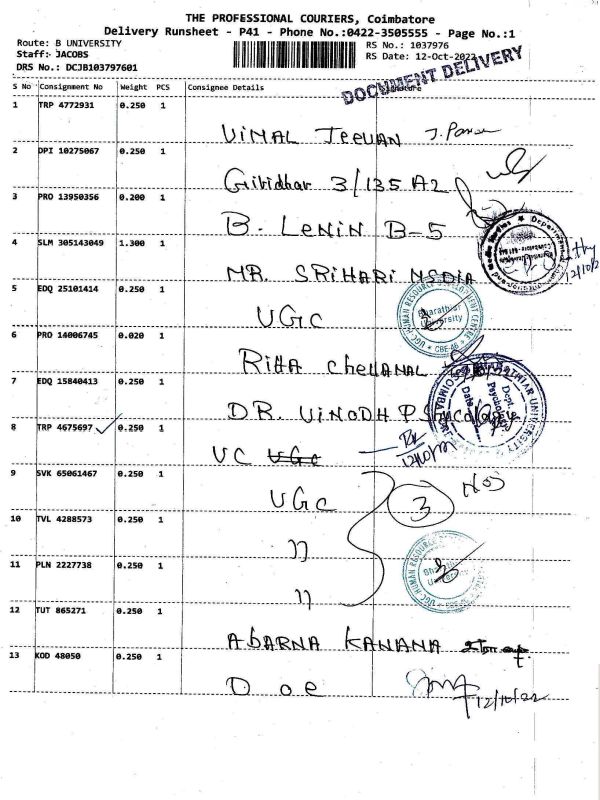 THE PROFESSIONAL COURIERS, Coimbatore
Delivery Runsheet - P41 - Phone No.:0422-3505555 - Page No.:1
Route: B UNIVERSITY
RS No.: 1037976
Staff:- JACOBS
RS Date: 12-Oct-2022
DRS No.: DCJB103797601
DOCUMENT DELIVERY
S No Consignment No Weight PCS Consignee Details Signature
1 TRP 4772931 0.250 1
VIMAL JEEVAN
2 DPI 10275067 0.250 1
Giridhar 3/135 A2
3 PRO 13950356 0.200 1
B. LENIN B-5
4 SLM 305143049 1.300 1
MR. SRIHARI NSDIA
12/10/2
5 EDQ 25101414 0.250 1
UGC
UGC HUMAN RESOURCE DEVELOPMENT CENTRE
Bharathiar
University
CBE-46
6 PRO 14006745 0.020 1
Ritta Chellanal
7 EDQ 15840413 0.250 1
DR. VINODH PShycology
BHARATHIAR UNIVERSITY
Dept.
Psychology
Date
8 TRP 4675697 0.250 1
UC UGC
12/10/22
9 SVK 65061467 0.250 1
UGC
3 Nos
10 TVL 4288573 0.250 1
"
11 PLN 2227738 0.250 1
"
UGC HUMAN RESOURCE
12 TUT 865271 0.250 1
ABARNA KANANA
13 KOD 48050 0.250 1
D o e
12/10/22